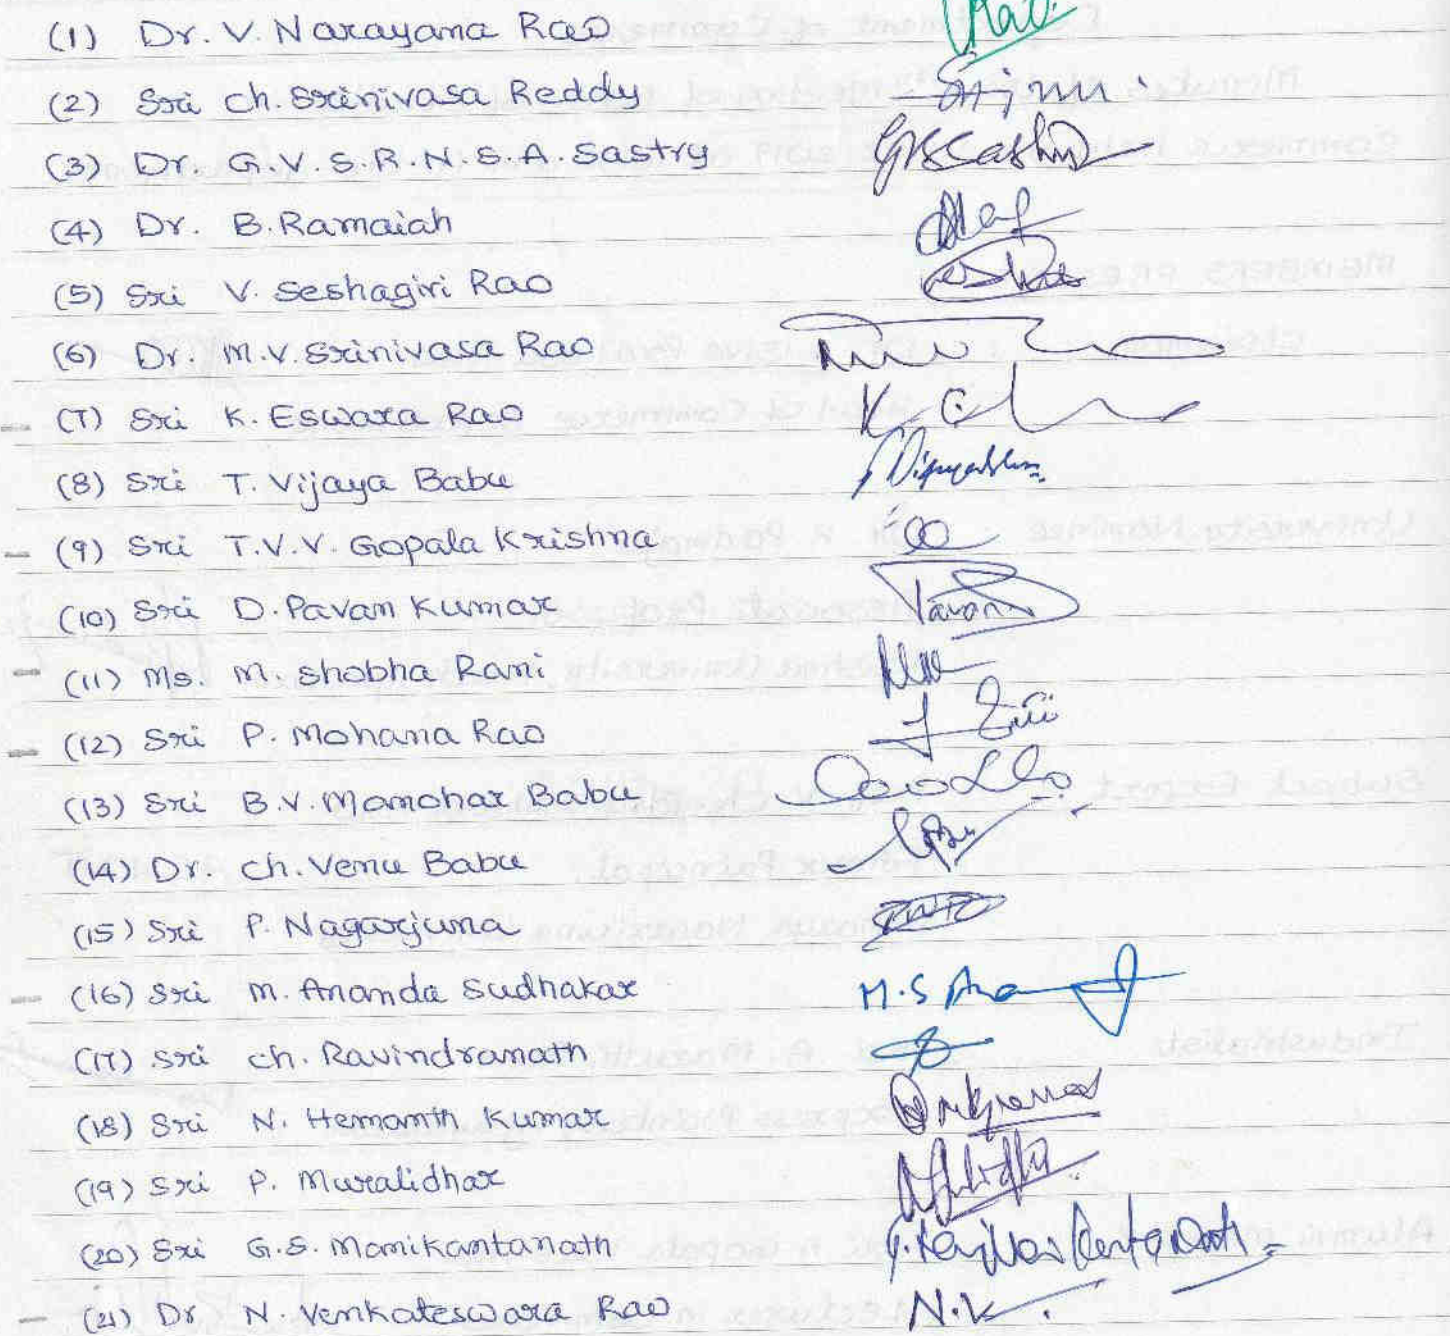 (1) Dr. V. Narayana Rao
(2) Sri Ch. Srinivasa Reddy
(3) Dr. G.V.S.R.N.S.A. Sastry
(4) Dr. B. Ramaiah
(5) Sri V. Seshagiri Rao
(6) Dr. M.V. Srinivasa Rao
(7) Sri K. Eswara Rao
(8) Sri T. Vijaya Babu
(9) Sri T.V.V. Gopala Krishna
(10) Sri D. Pavan Kumar Pavan
(11) Ms. M. Shobha Rani
(12) Sri P. Mohana Rao
(13) Sri B.V. Manohar Babu
(14) Dr. Ch. Venu Babu
(15) Sri P. Nagarjuna
(16) Sri M. Ananda Sudhakar M.S
(17) Sri Ch. Ravindranath
(18) Sri N. Hemanth Kumar
(19) Sri P. Muralidhar
(20) Sri G.S. Manikantanath
(21) Dr N. Venkateswara Rao N.V